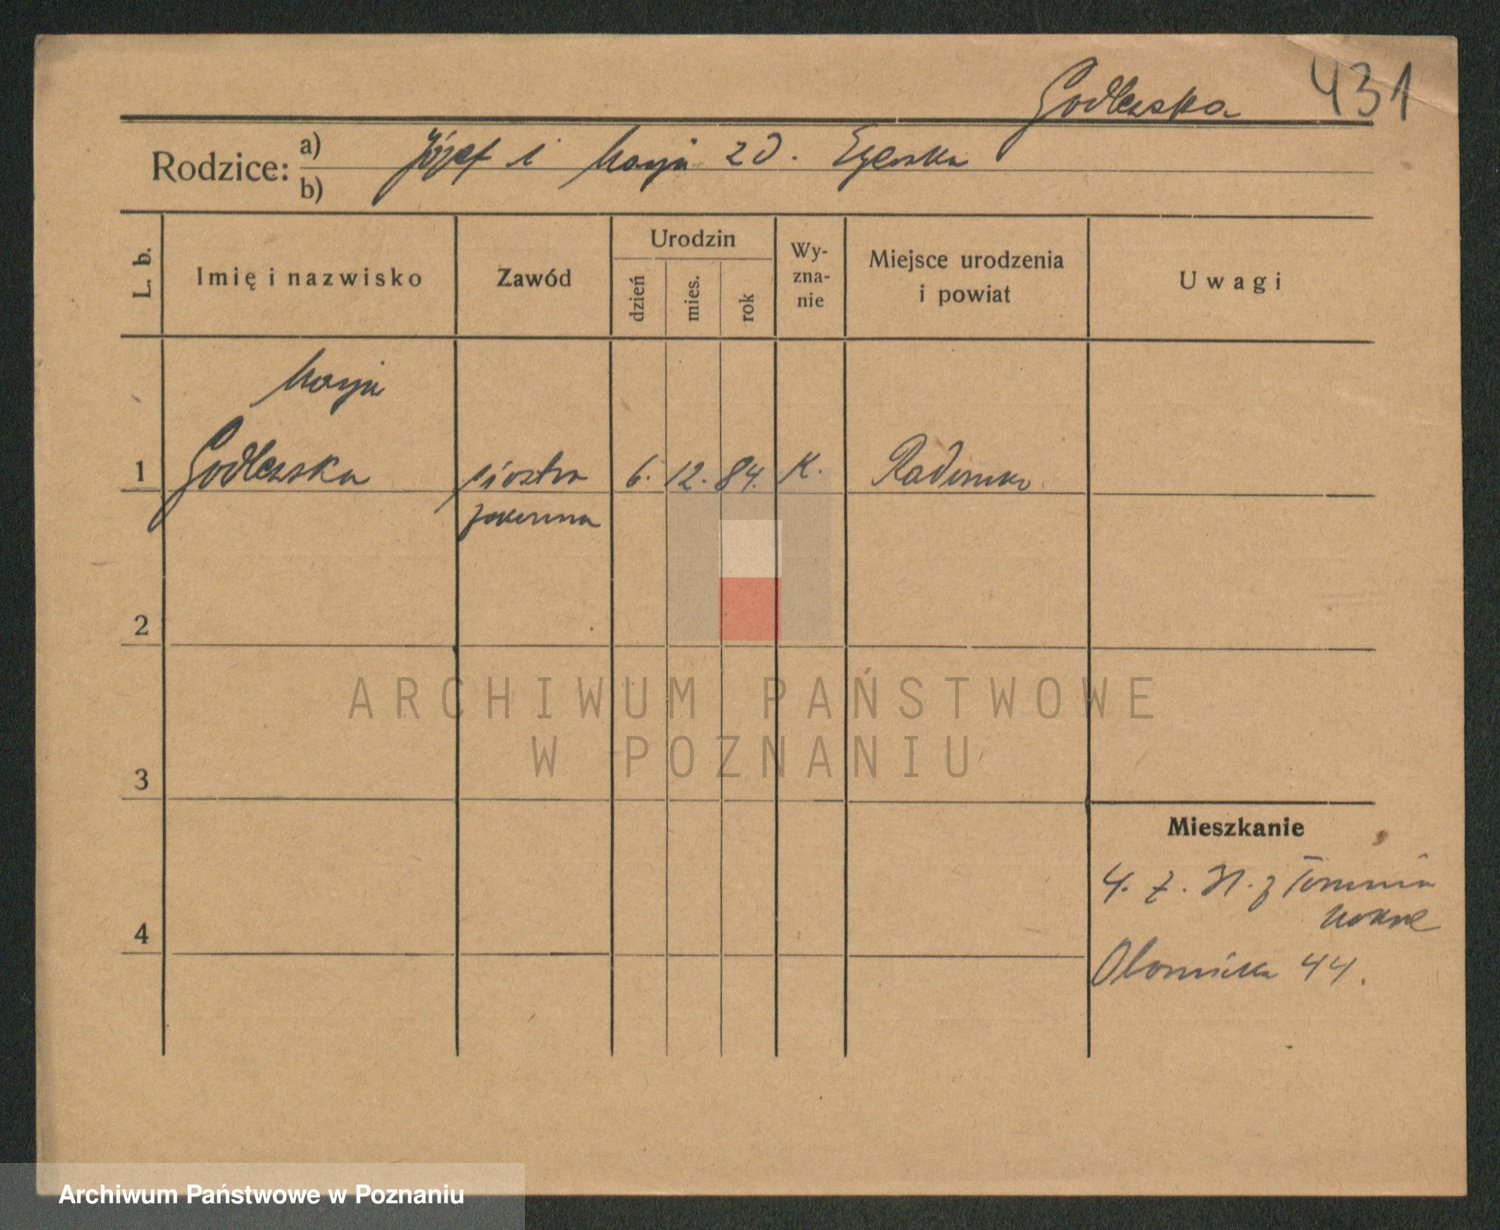 431
Godlewska
Rodzice: a) Józef i Marja zd.
b)
L. b.
Imię i nazwisko
Zawód
Urodzin
dzień
mies.
rok
Wy-
zna-
nie
Miejsce urodzenia
i powiat
Uwagi
Marja
1 Godlewska siostra 6. 12. 84. K. Radomsko
zakonna
2
3
4
ARCHIWUM PAŃSTWOWE
W POZNANIU
Mieszkanie
4. z. 31. z Torunia
44.
Archiwum Państwowe w Poznaniu